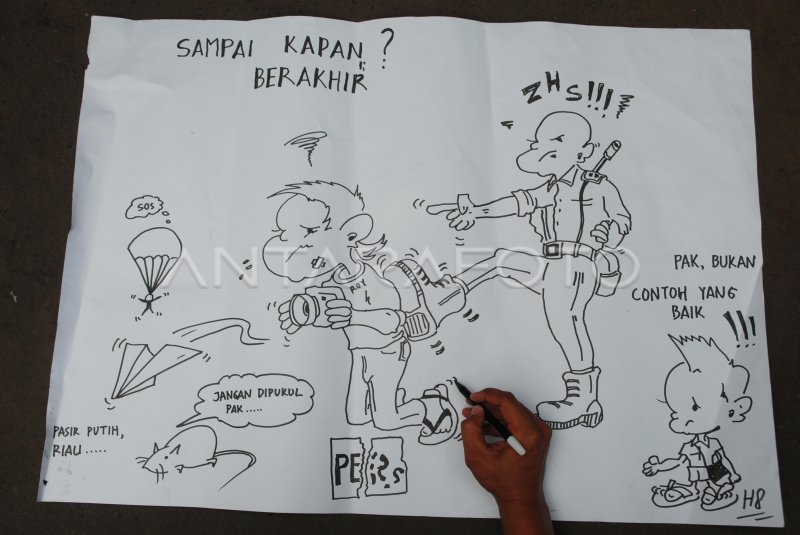 SAMPAI KAPAN ?
BERAKHIR
ZHS!!!
SOS
ANTARAFOTO
PAK, BUKAN
CONTOH YANG
BAIK
!!!
JANGAN DIPUKUL
PAK.....
PASIR PUTIH,
RIAU.....
H8